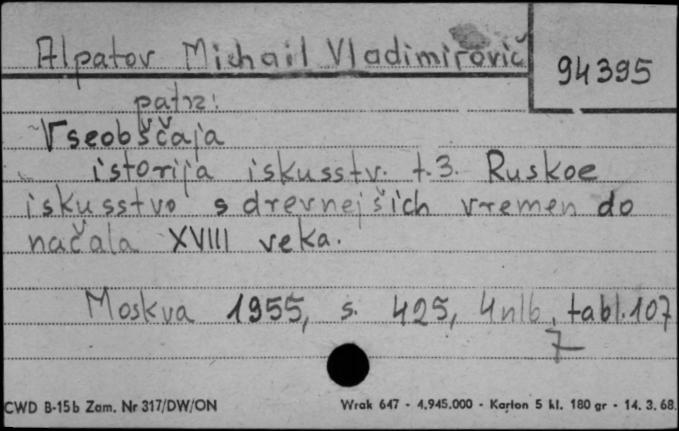 Alpatov Michail Vladimirovič
94395
patrz:
Vseobščaja
istorija iskusstv. t.3. Ruskoe
iskusstvo s drevnejšich vremen do
načala XVIII veka.
Moskva 1955, s. 425, 4nlb, tabl.107
7
CWD B-15b Zam. Nr 317/DW/ON
Wrak 647 - 4.945.000 - Karton 5 kl. 180 gr - 14. 3. 68.